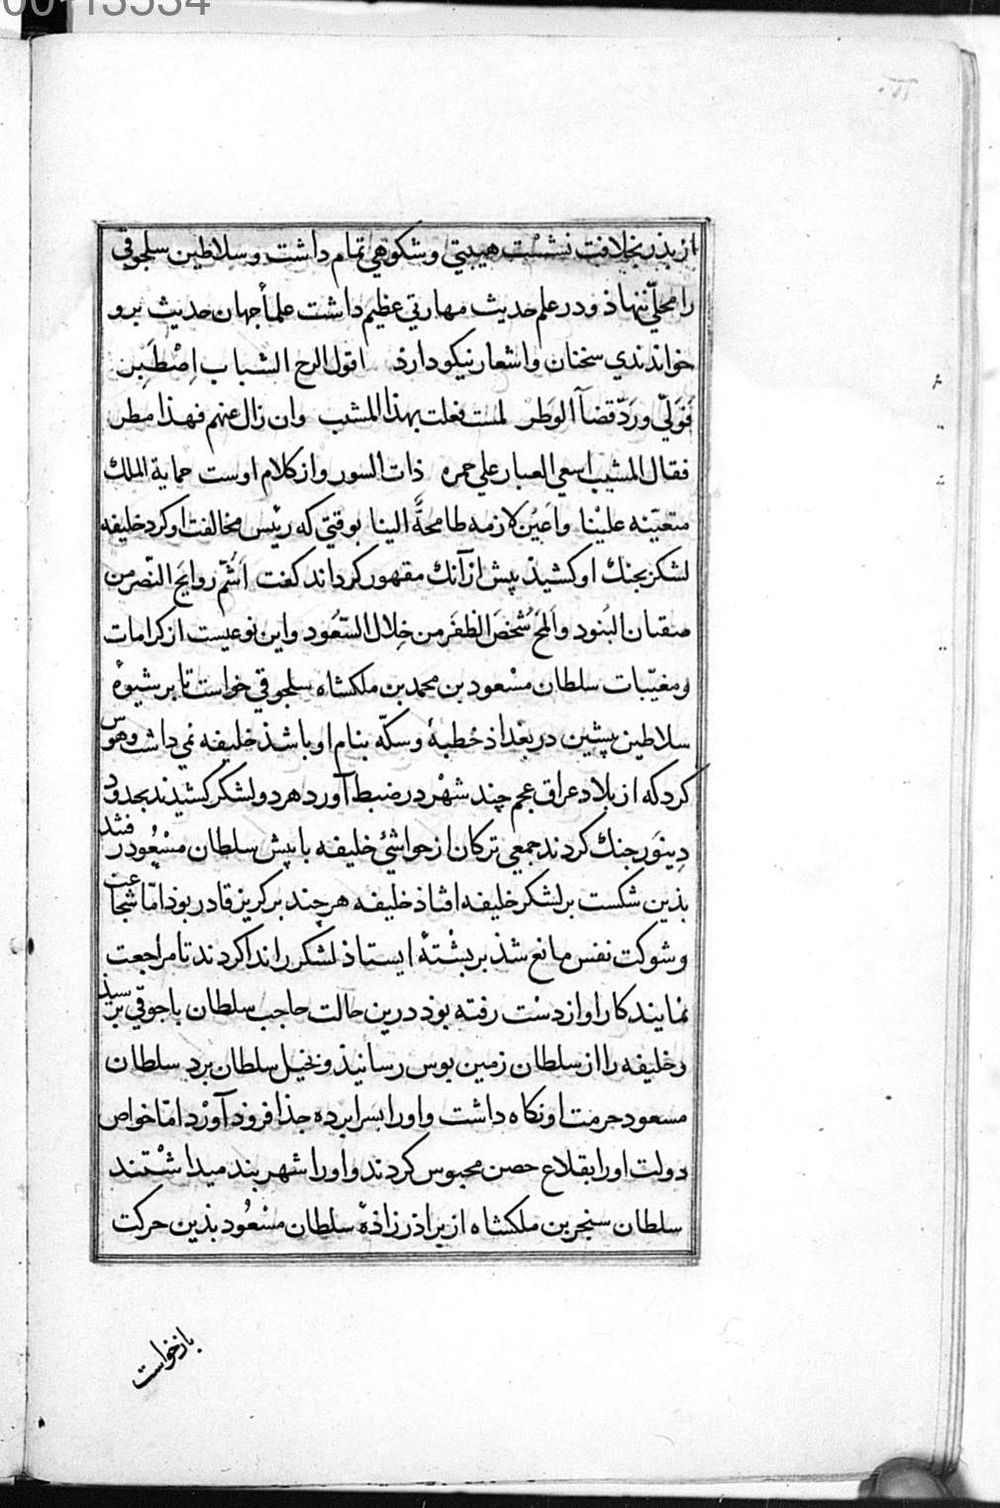 00113534
از پذر بخلافت نشست هیبتی و شکوهی تمام داشت و سلاطین سلجوقی
را محلّی ننهاذ و در علم حدیث مهارتی عظیم داشت علمأ جهان حدیث برو
خواندندی سخنان و اشعار نیکو دارذ اقول الرح الشباب اِصْطَبِرن
فَوَلّی و رَدّ قضآ الوَطر لمست نعلت بهذا المشب وان زال عنهم فهذا مطر
فقال المشیب اسعی العبار علی حمره ذات السور و از کلام اوست حمایة الملك
متعیّنه علیْنا واَعیُن لازمه طامحةً الینا بوقتی که رئیس مخالفت او کرد خلیفه
لشکر بجنك او کشیذ پیش از آنك مقهور کرداند کفت اَشُمّ روایح النّصر من
صقبان البُنود واَلمَحُ شُخصَ الظفَر من خِلال السّعُود و این نوعیست از کرامات
و مغیّبات سلطان مسْعود بن محمد بن ملکشاه سلجوقی خواست تا بر شیوهٔ
سلاطین پیشین در بغداذ خطبهٔ و سکّه بنام او باشذ خلیفه نمی داشت و هوس
کرد که از بلاد عراق عجم چند شهْر در ضبط آورد هر دو لشکر کشیدند بحدود
دِینَور جنك کردند جمعی ترکان از حواشیٔ خلیفه با پیش سلطان مسْعُود رفتند
بذین شکست بر لشکر خلیفه افتاذ خلیفه هر چند بر کریز قادر بوذ امّا شجاعت
و شوکت نفس مانع شذ بر پشْتهٔ ایستاذ لشکر را ندا کردند تا مراجعت
نمایند کار او از دسْت رفته بوذ درین حالت حاجب سلطان با جوقی برسیذ
و خلیفه را از سلطان زمین بوس رسانیذ و بخیل سلطان برد سلطان
مسعود حرمت او نکاه داشت و او را بسرابرده جذا فروذ آورْد امّا خواص
دولت او را بقلاع حصن محبوس کردند و او را شهر بند میداشْتند
سلطان سنجر بن ملکشاه از براذرزاذهٔ سلطان مسْعُود بذین حرکت
بازخواست